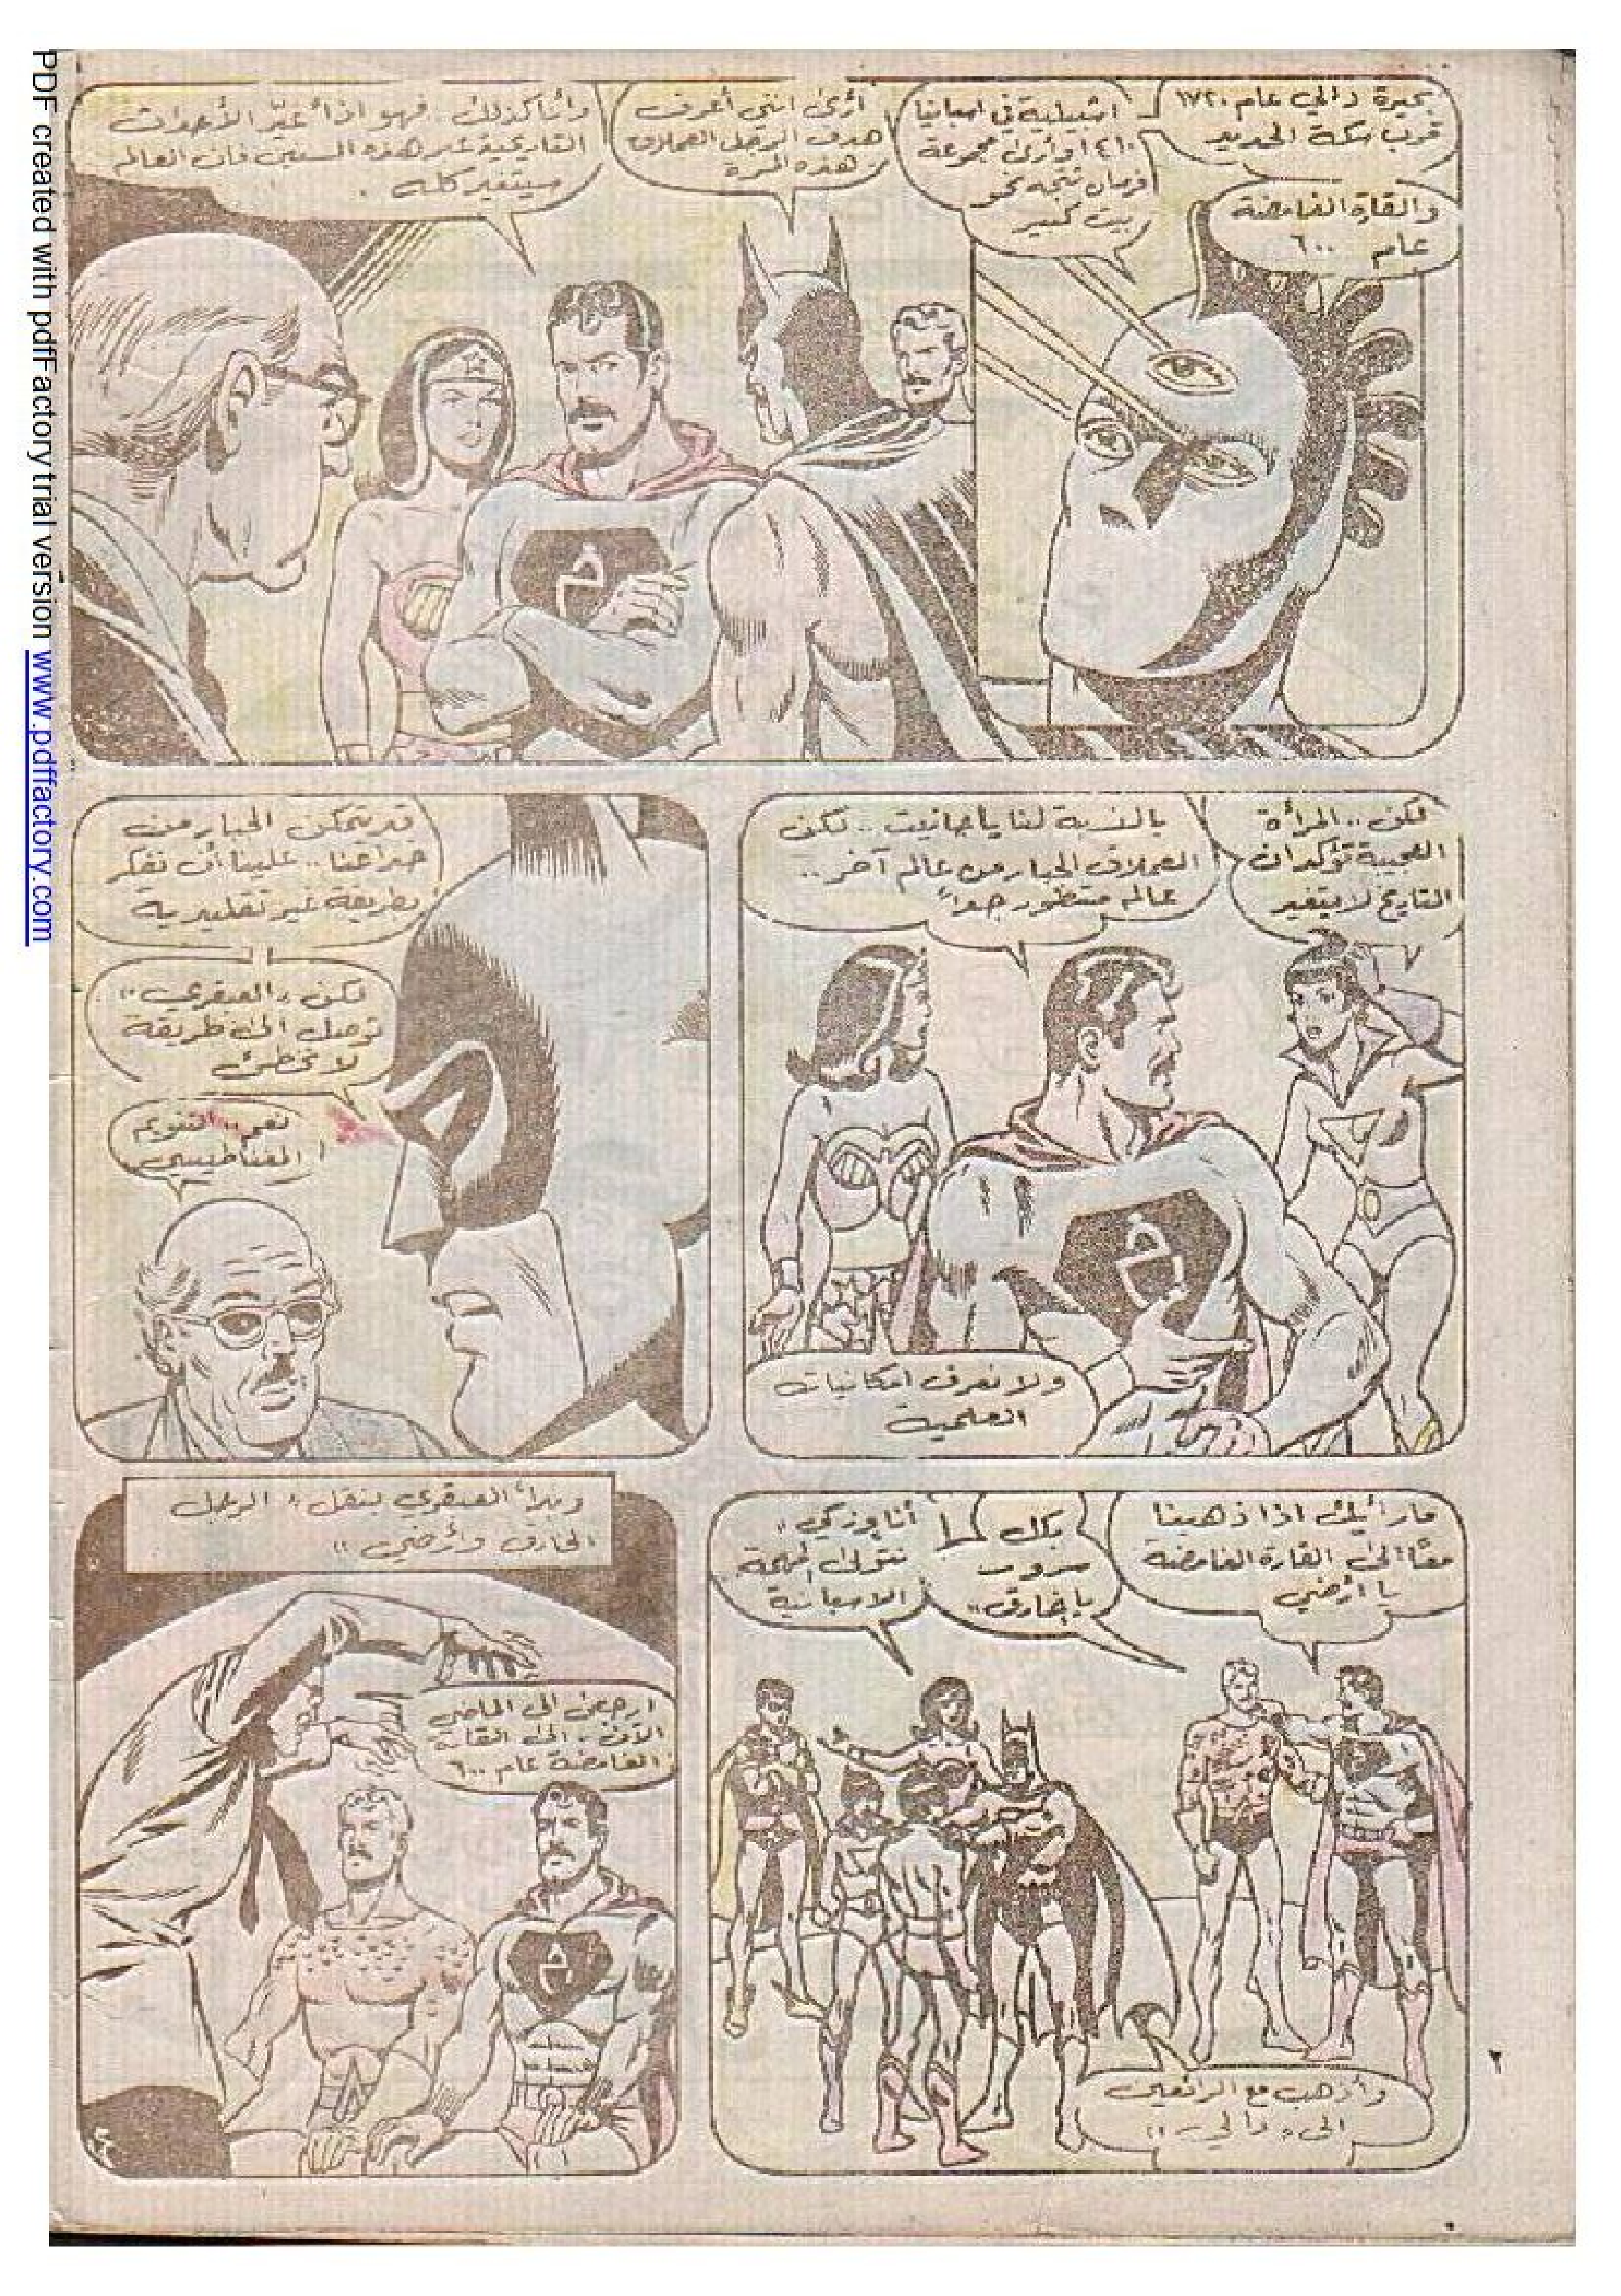 بحيرة دالي عام ١٧٢٠
قرب سكة الحديد
والقارة الغامضة
عام ٦٠٠
اشبيلية في اسبانيا
وأرى مجموعة
فرسان تتجه نحو
بيت كبير
أرى انني أعرف
هدف الرجل العملاق
هذه المرة
وأنا كذلك . فهو اذا غيّر الأحداث
التاريخية عبر هذه السنين فان العالم
سيتغير كله .
لكن .. المرأة
العجيبة تؤكد ان
التاريخ لا يتغير
بالنسبة لنا يا جانيت .. لكن
العملاق الجبار من عالم آخر ..
عالم متطور جداً
ولا نعرف امكانياته
العلمية
قد يتمكن الجبار من
خداعنا .. علينا أن نفكر
بطريقة غير تقليدية
لكن « العبقري »
توصل الى طريقة
لا تخطئ
نعم .. التنويم
المغناطيسي !
ما رأيك اذا ذهبنا
معاً الى القارة الغامضة
يا أرضي
بكل
سرور
يا خارق ..
أنا وزكي
نتولى المهمة
الاسبانية
وأذهب مع الرائعين
الى « دالي » !!
وبدأ العبقري بنقل « الرجل
الخارق وأرضي »
ارجعن الى الماضي
الآن .. الى القارة
الغامضة عام ٦٠٠
٢
PDF created with pdfFactory trial version www.pdffactory.com